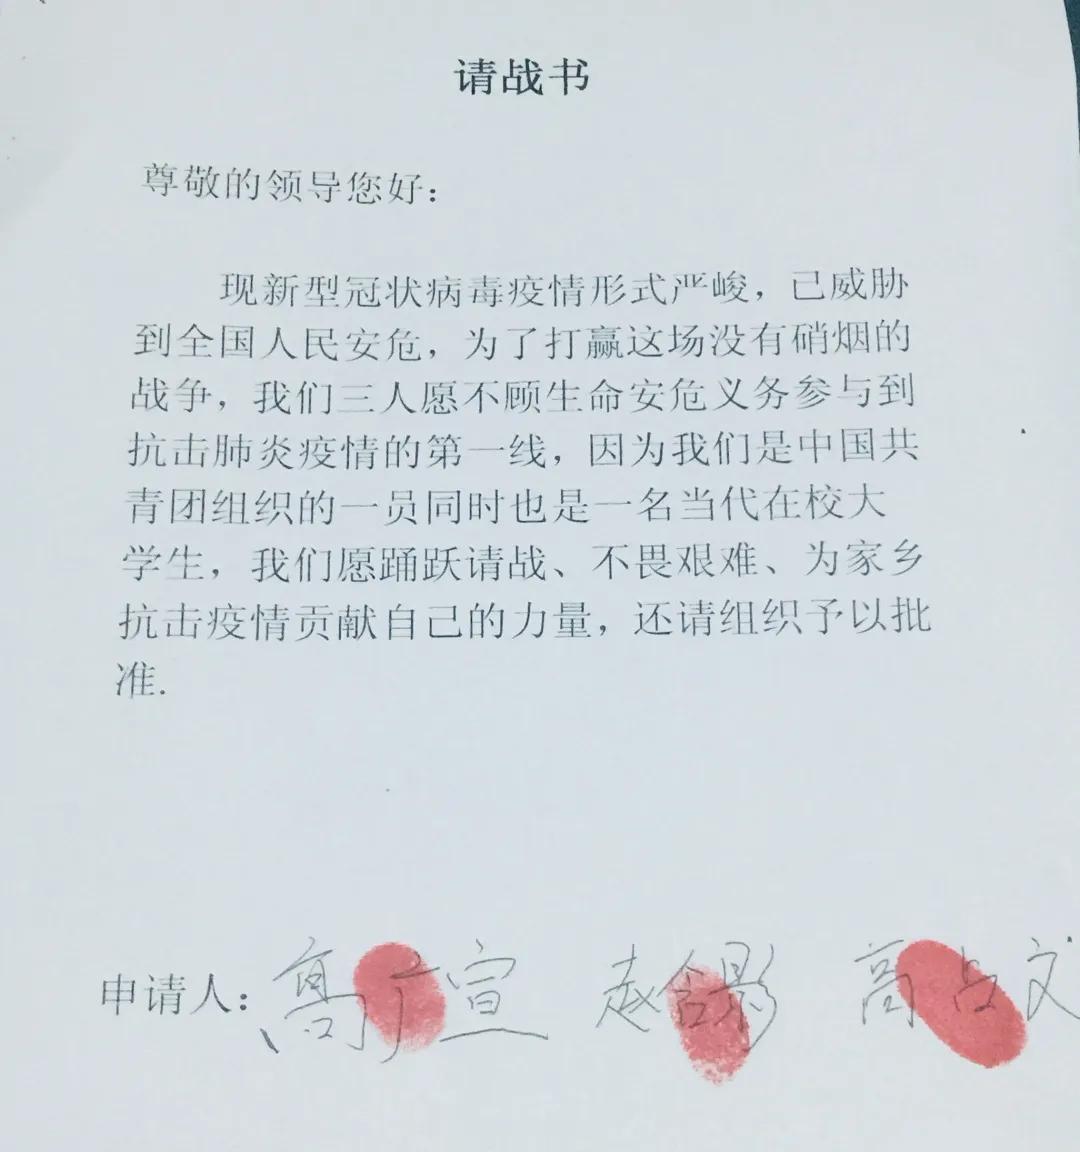 请战书
尊敬的领导您好：
现新型冠状病毒疫情形式严峻，已威胁
到全国人民安危，为了打赢这场没有硝烟的
战争，我们三人愿不顾生命安危义务参与到
抗击肺炎疫情的第一线，因为我们是中国共
青团组织的一员同时也是一名当代在校大
学生，我们愿踊跃请战、不畏艰难、为家乡
抗击疫情贡献自己的力量，还请组织予以批
准.
申请人：高广宣 赵含影 高占文